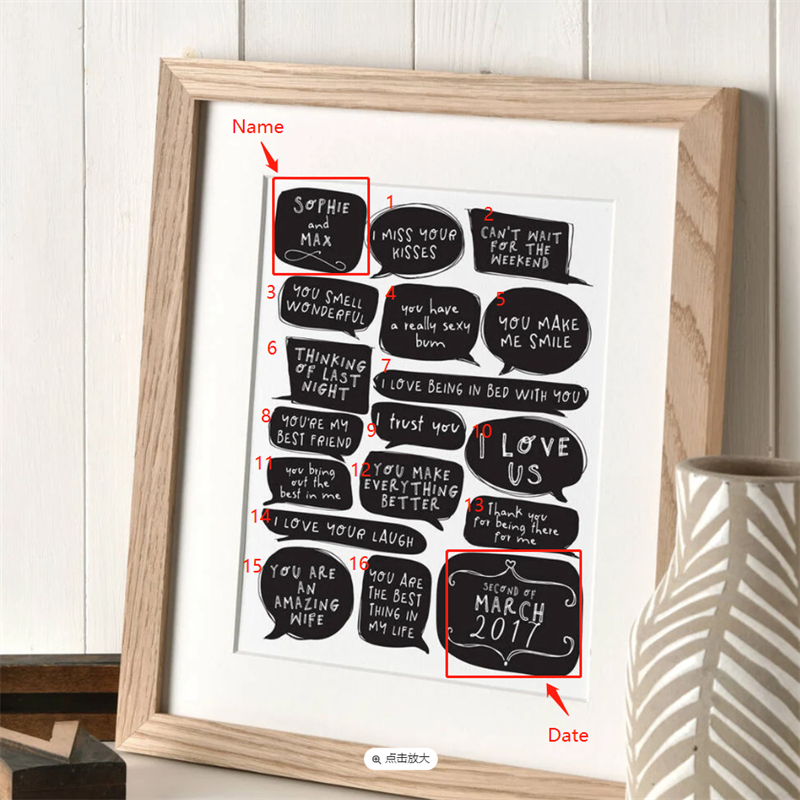 Name
SOPHIE
and
MAX
1
I MISS YOUR
KISSES
2
CAN'T WAIT
FOR THE
WEEKEND
3
YOU SMELL
WONDERFUL
4
you have
a really sexy
bum
5
YOU MAKE
ME SMILE
6
THINKING
OF LAST
NIGHT
7
I LOVE BEING IN BED WITH YOU
8
YOU'RE MY
BEST FRIEND
9
I trust you
10
I LOVE
US
11
you bring
out the
best in me
12
YOU MAKE
EVERYTHING
BETTER
13
Thank you
for being there
for me
14
I LOVE YOUR LAUGH
15
YOU ARE
AN
AMAZING
WIFE
16
YOU ARE
THE BEST
THING IN
MY LIFE
SECOND OF
MARCH
2017
Date
点击放大